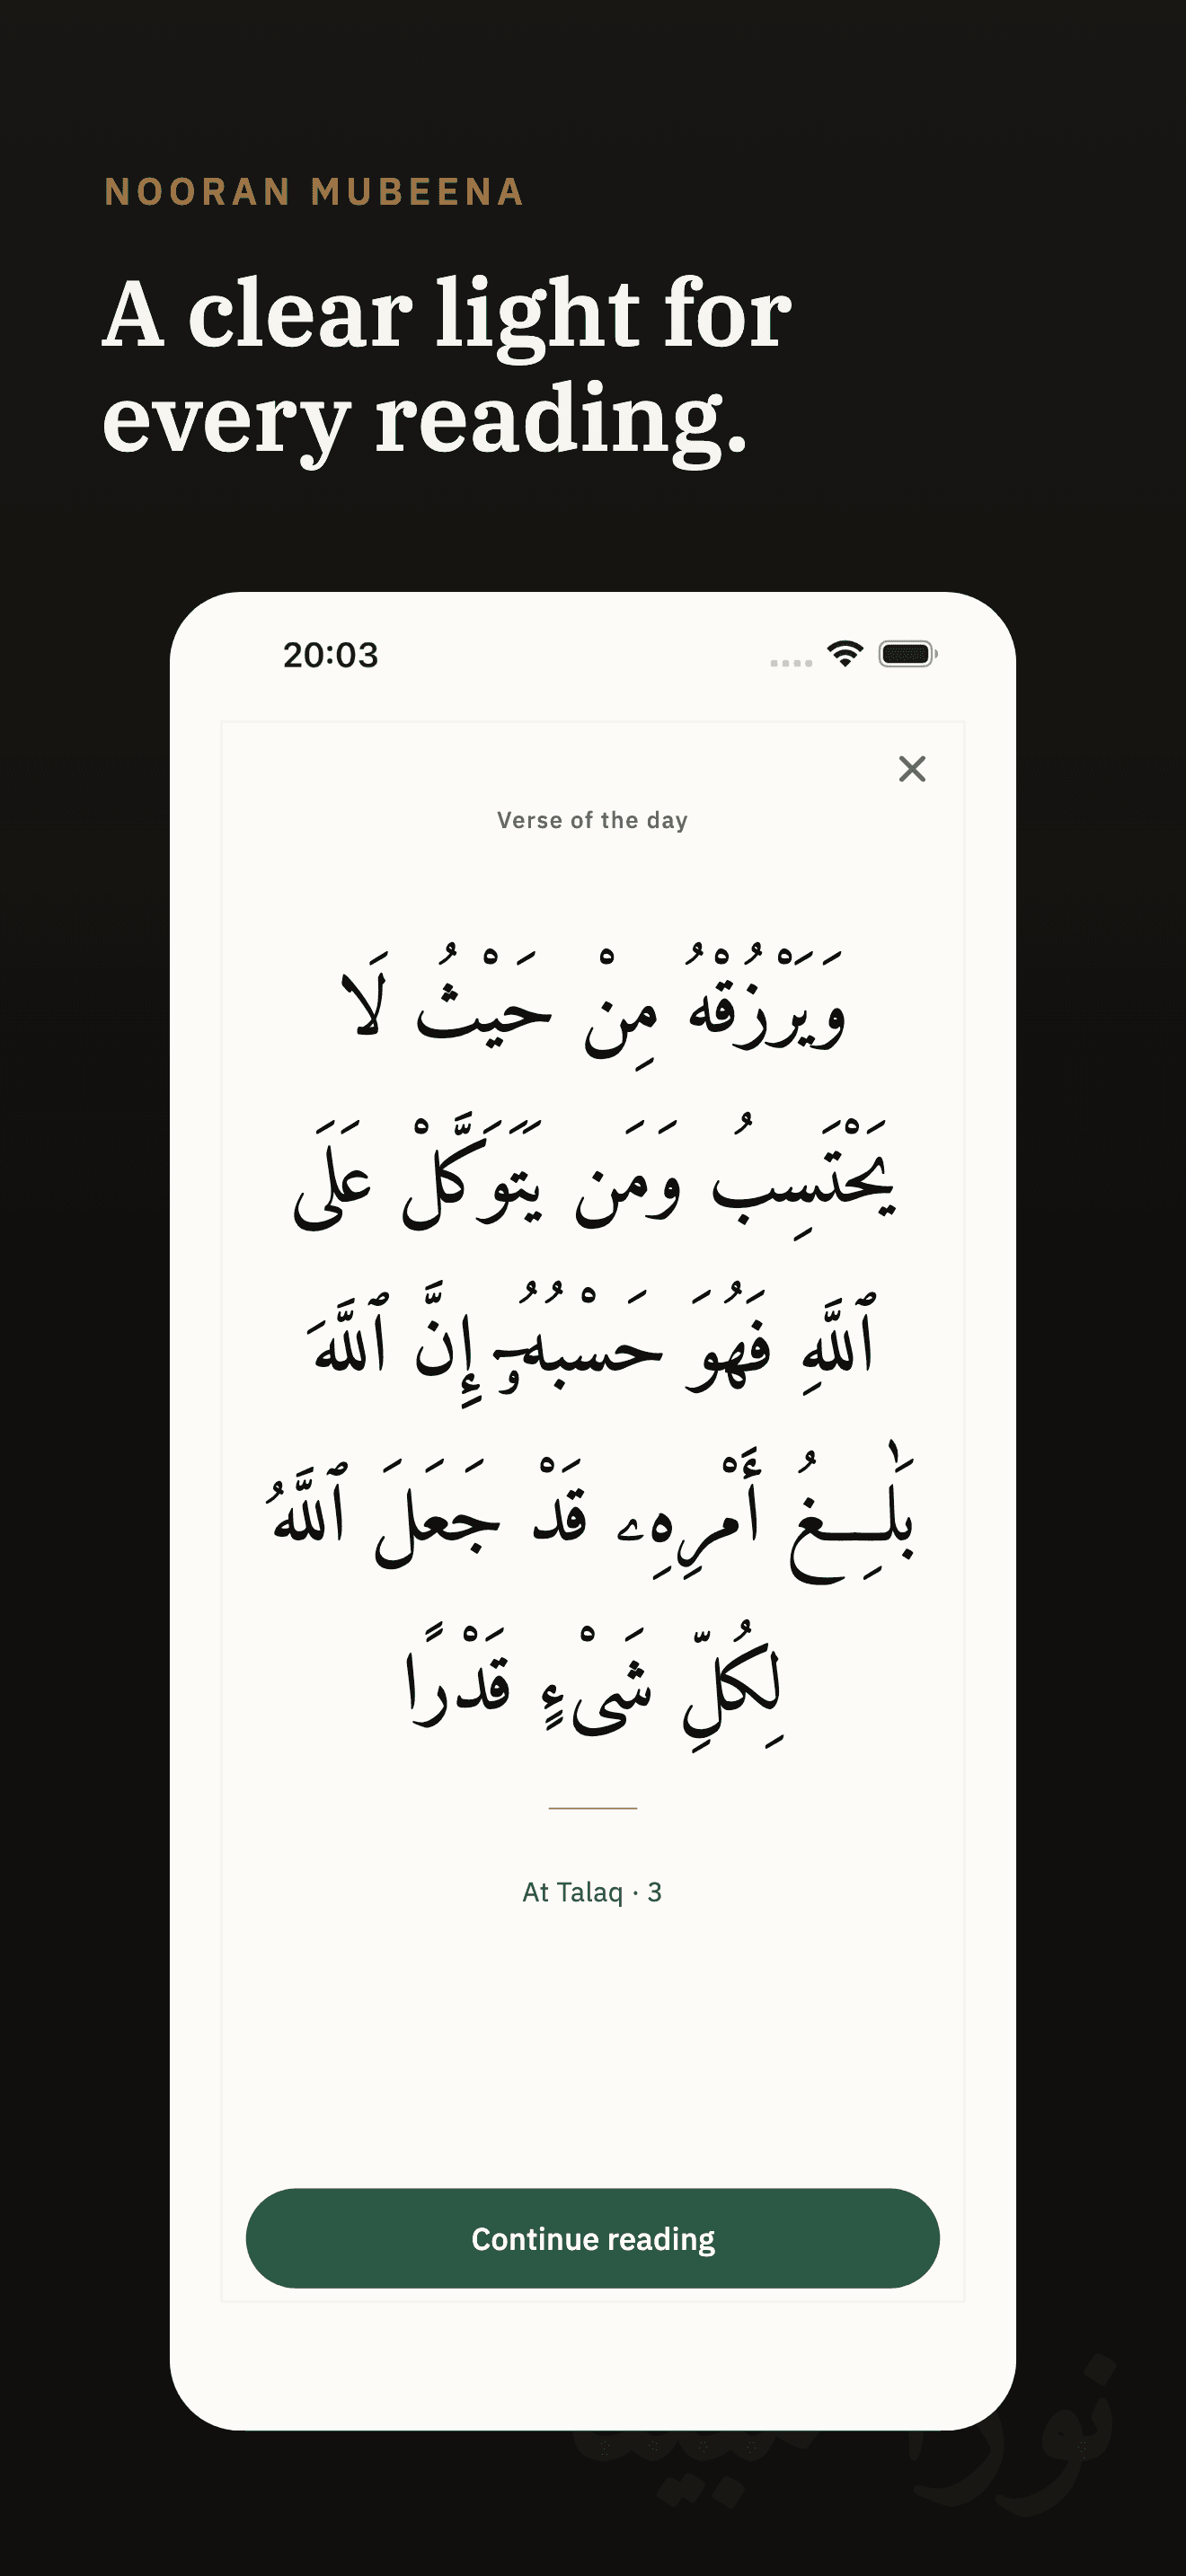 NOORAN MUBEENA
A clear light for
every reading.
20:03
Verse of the day
وَيَرْزُقْهُ مِنْ حَيْثُ لَا
يَحْتَسِبُ وَمَن يَتَوَكَّلْ عَلَى
ٱللَّهِ فَهُوَ حَسْبُهُۥٓ إِنَّ ٱللَّهَ
بَـٰلِغُ أَمْرِهِۦ قَدْ جَعَلَ ٱللَّهُ
لِكُلِّ شَىْءٍ قَدْرًا
At Talaq · 3
Continue reading